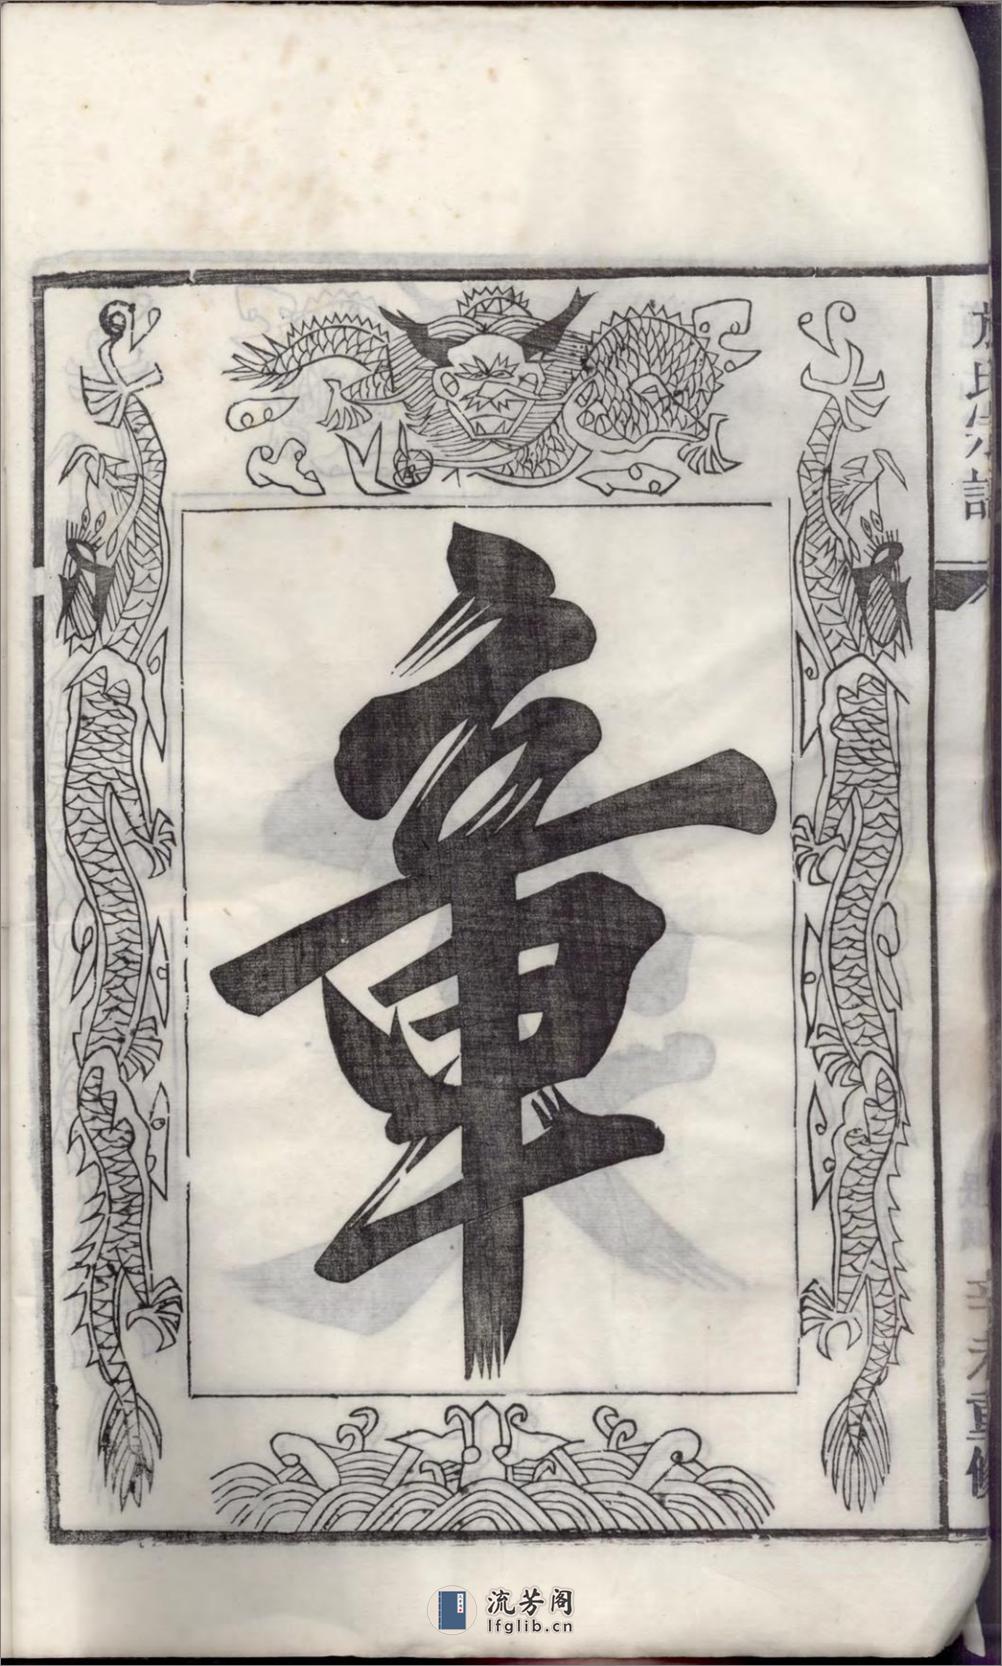 章
施氏宗譜
重修
流芳阁
lfglib.cn